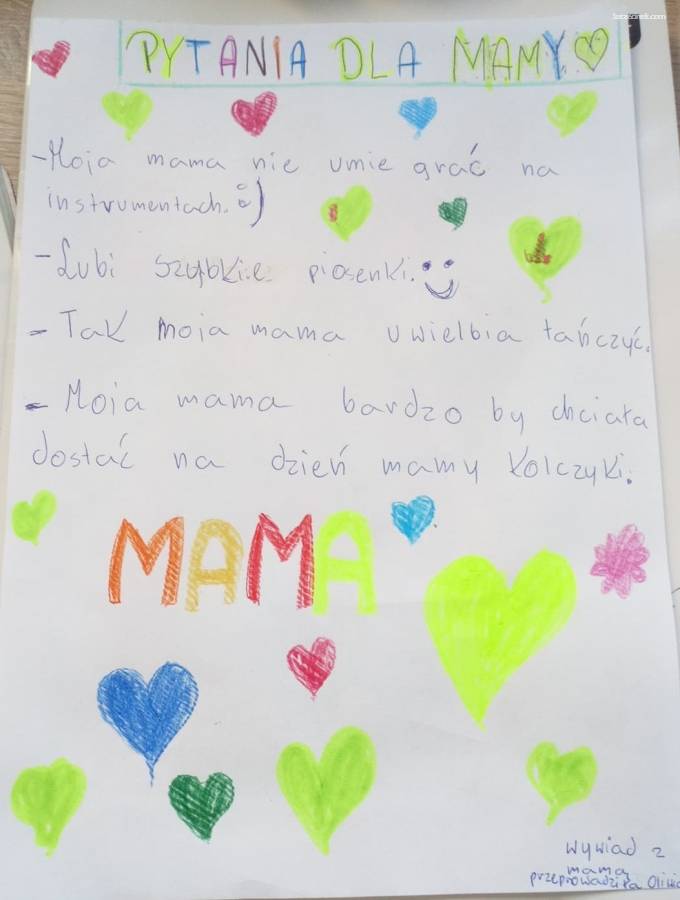 PYTANIA DLA MAMY
- Moja mama nie umie grać na
instrumentach. :)
- Lubi szybkie piosenki.
- Tak moja mama uwielbia tańczyć.
- Moja mama bardzo by chciała
dostać na dzień mamy kolczyki.
MAMA
wywiad z
mamą
przeprowadziła